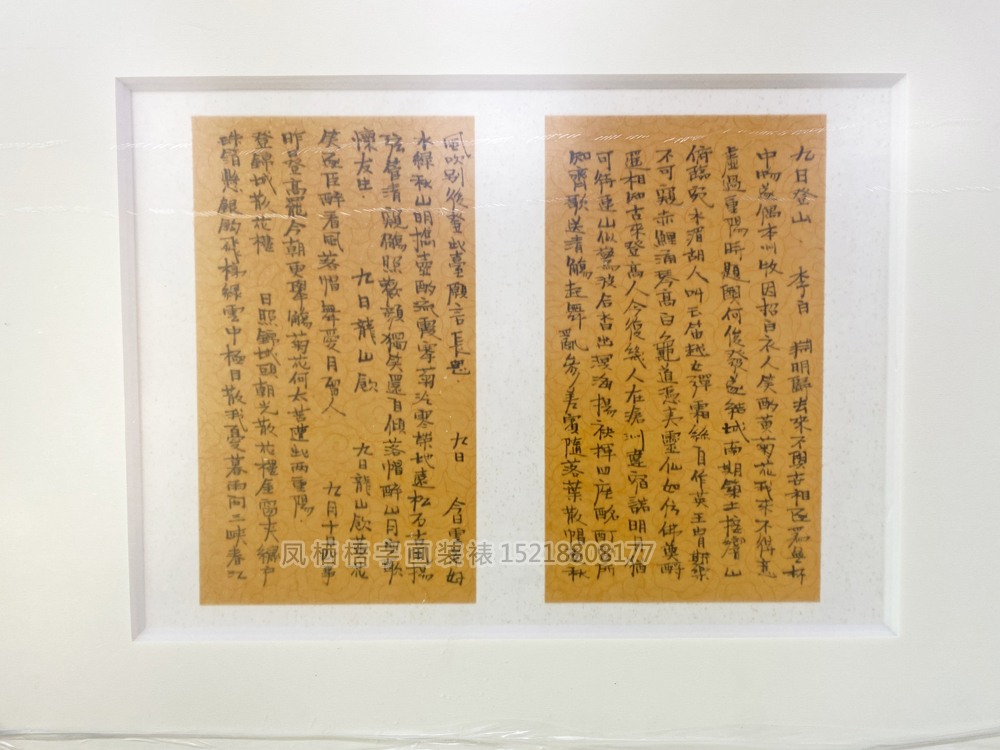 九日登山 李白 淵明歸去來不與世相逐爲無杯
中物遂偶本州牧因招白衣人笑酌黃菊花我來不得意
虛過重陽時題輿何俊發遂結城南期築土按響山
俯臨宛水湄胡人叫玉笛越女彈霜絲自作英王胄斯樂
不可窺赤鯉涌琴高白龜道馮夷靈仙如仿佛奠酹
遙相知古來登高人今復幾人在滄洲違宿諾明日猶
可待連山似驚波合沓出溟海揚袂揮四座酩酊安所
知齊歌送清觴起舞亂參差賓隨落葉散帽逐秋
風吹別後登此臺願言長思 九日 今日雲景好
水綠秋山明攜壺酌流霞搴菊泛寒榮地遠松石古風揚
絃管清窺觴照歡顏獨笑還自傾落帽醉山月空歌
懷友生 九日龍山飲 九日龍山飲黃花
笑逐臣醉看風落帽舞愛月留人 九月十日即事
昨登高罷今朝更舉觴菊花何太苦遭此兩重陽
登錦城散花樓 日照錦城頭朝光散花樓金窗夾繡戶
珠箔懸銀鉤飛梯綠雲中極目散我憂暮雨向三峽春江
凤栖梧字画装裱 15218808177